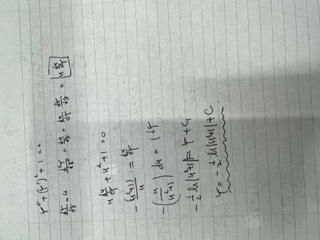 r'' + (r')² + 1 = 0
dr/dx = u  d²r/dx² = du/dx = du/dr · dr/dx = u du/dr
u du/dr + u² + 1 = 0
-(u²+1)/u = du/dr
-∫(u/(u²+1)) du = ∫dr
-½ ln|u²+1| = r + C₁
r = -½ ln|u²+1| + C